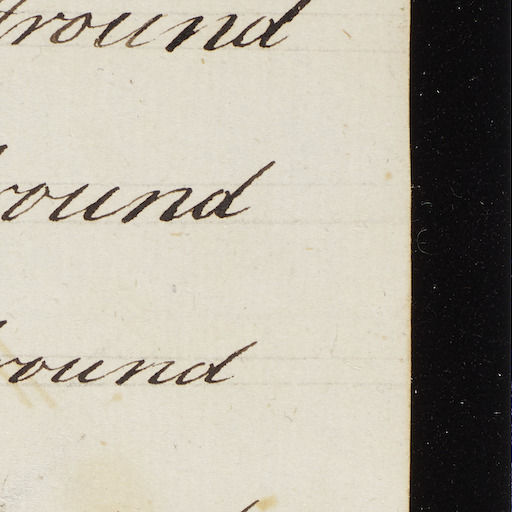 round
ound
ound